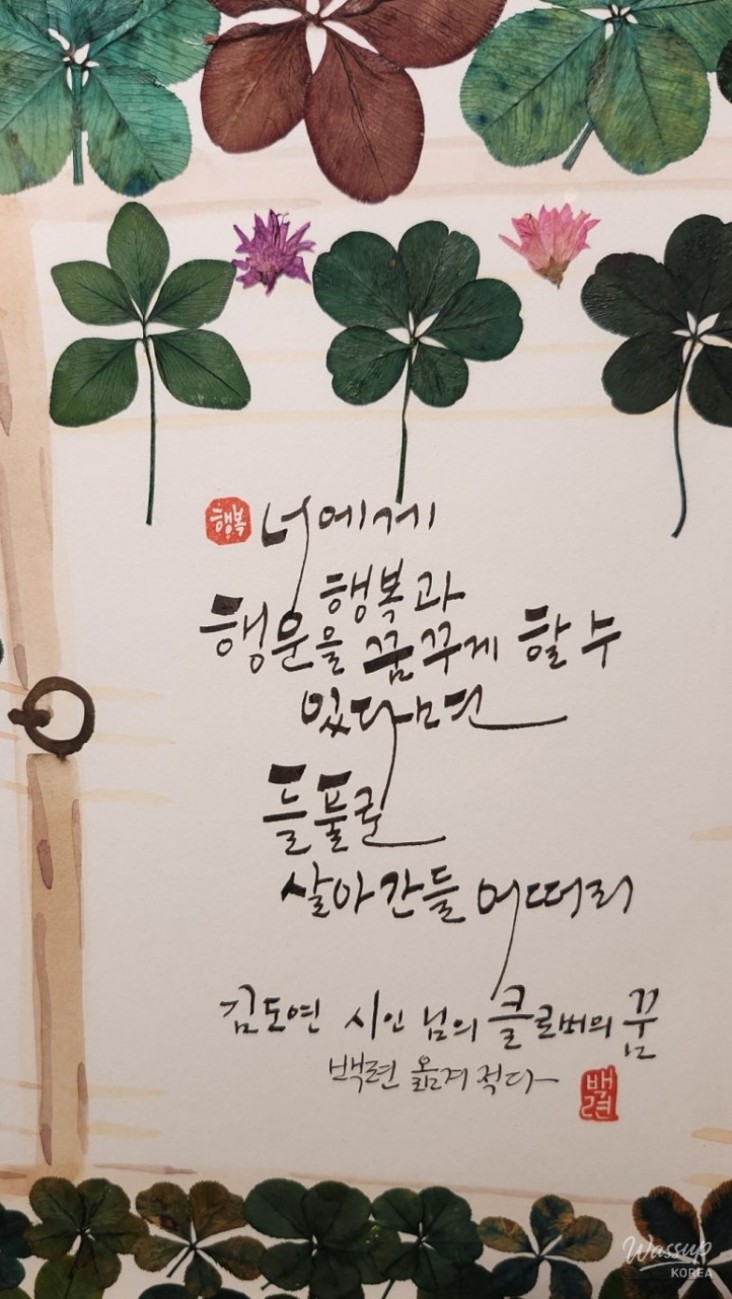 행복 너에게
행복과
행운을 꿈꾸게 할 수
있다면
들풀로
살아간들 어떠리
김도연 시인님의 클로버의 꿈
백련 옮겨 적다
백련
Wassup
KOREA